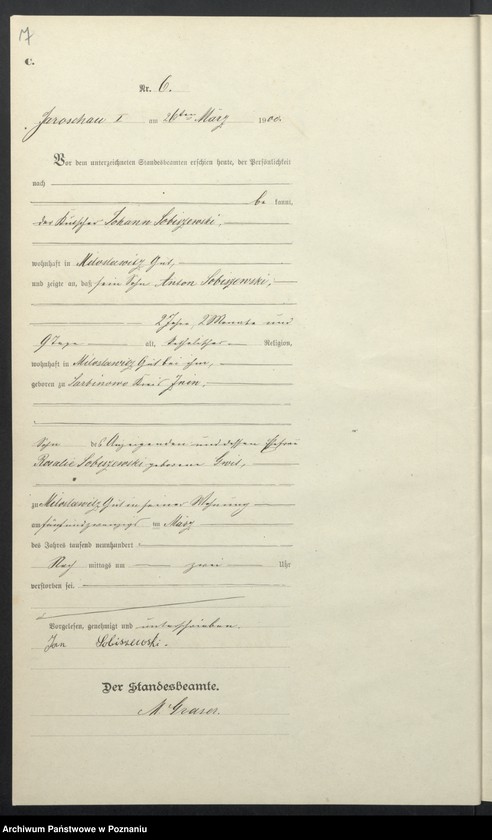 17
C.
Nr. 6.
Jaroschau I am 26ten März 1900.
Vor dem unterzeichneten Standesbeamten erschien heute, der Persönlichkeit
nach
be kannt,
der Kutscher Johann Sobiszewski,
wohnhaft in Miloslawitz Gut,
und zeigte an, daß sein Sohn Anton Sobiszewski,
2 Jahre, 2 Monate und
9 Tage alt, katholischer Religion,
wohnhaft in Miloslawitz Gut bei ihm,
geboren zu Sarbinowo Kreis Znin,
Sohn des Anzeigenden und dessen Ehefrau
Rosalie Sobiszewski geborene
zu Miloslawitz Gut in seiner Wohnung
am fünfundzwanzigsten März
des Jahres tausend neunhundert
Nach mittags um zwei Uhr
verstorben sei.
Vorgelesen, genehmigt und unterschrieben.
Jan Sobiszewski.
Der Standesbeamte.
M.
Archiwum Państwowe w Poznaniu